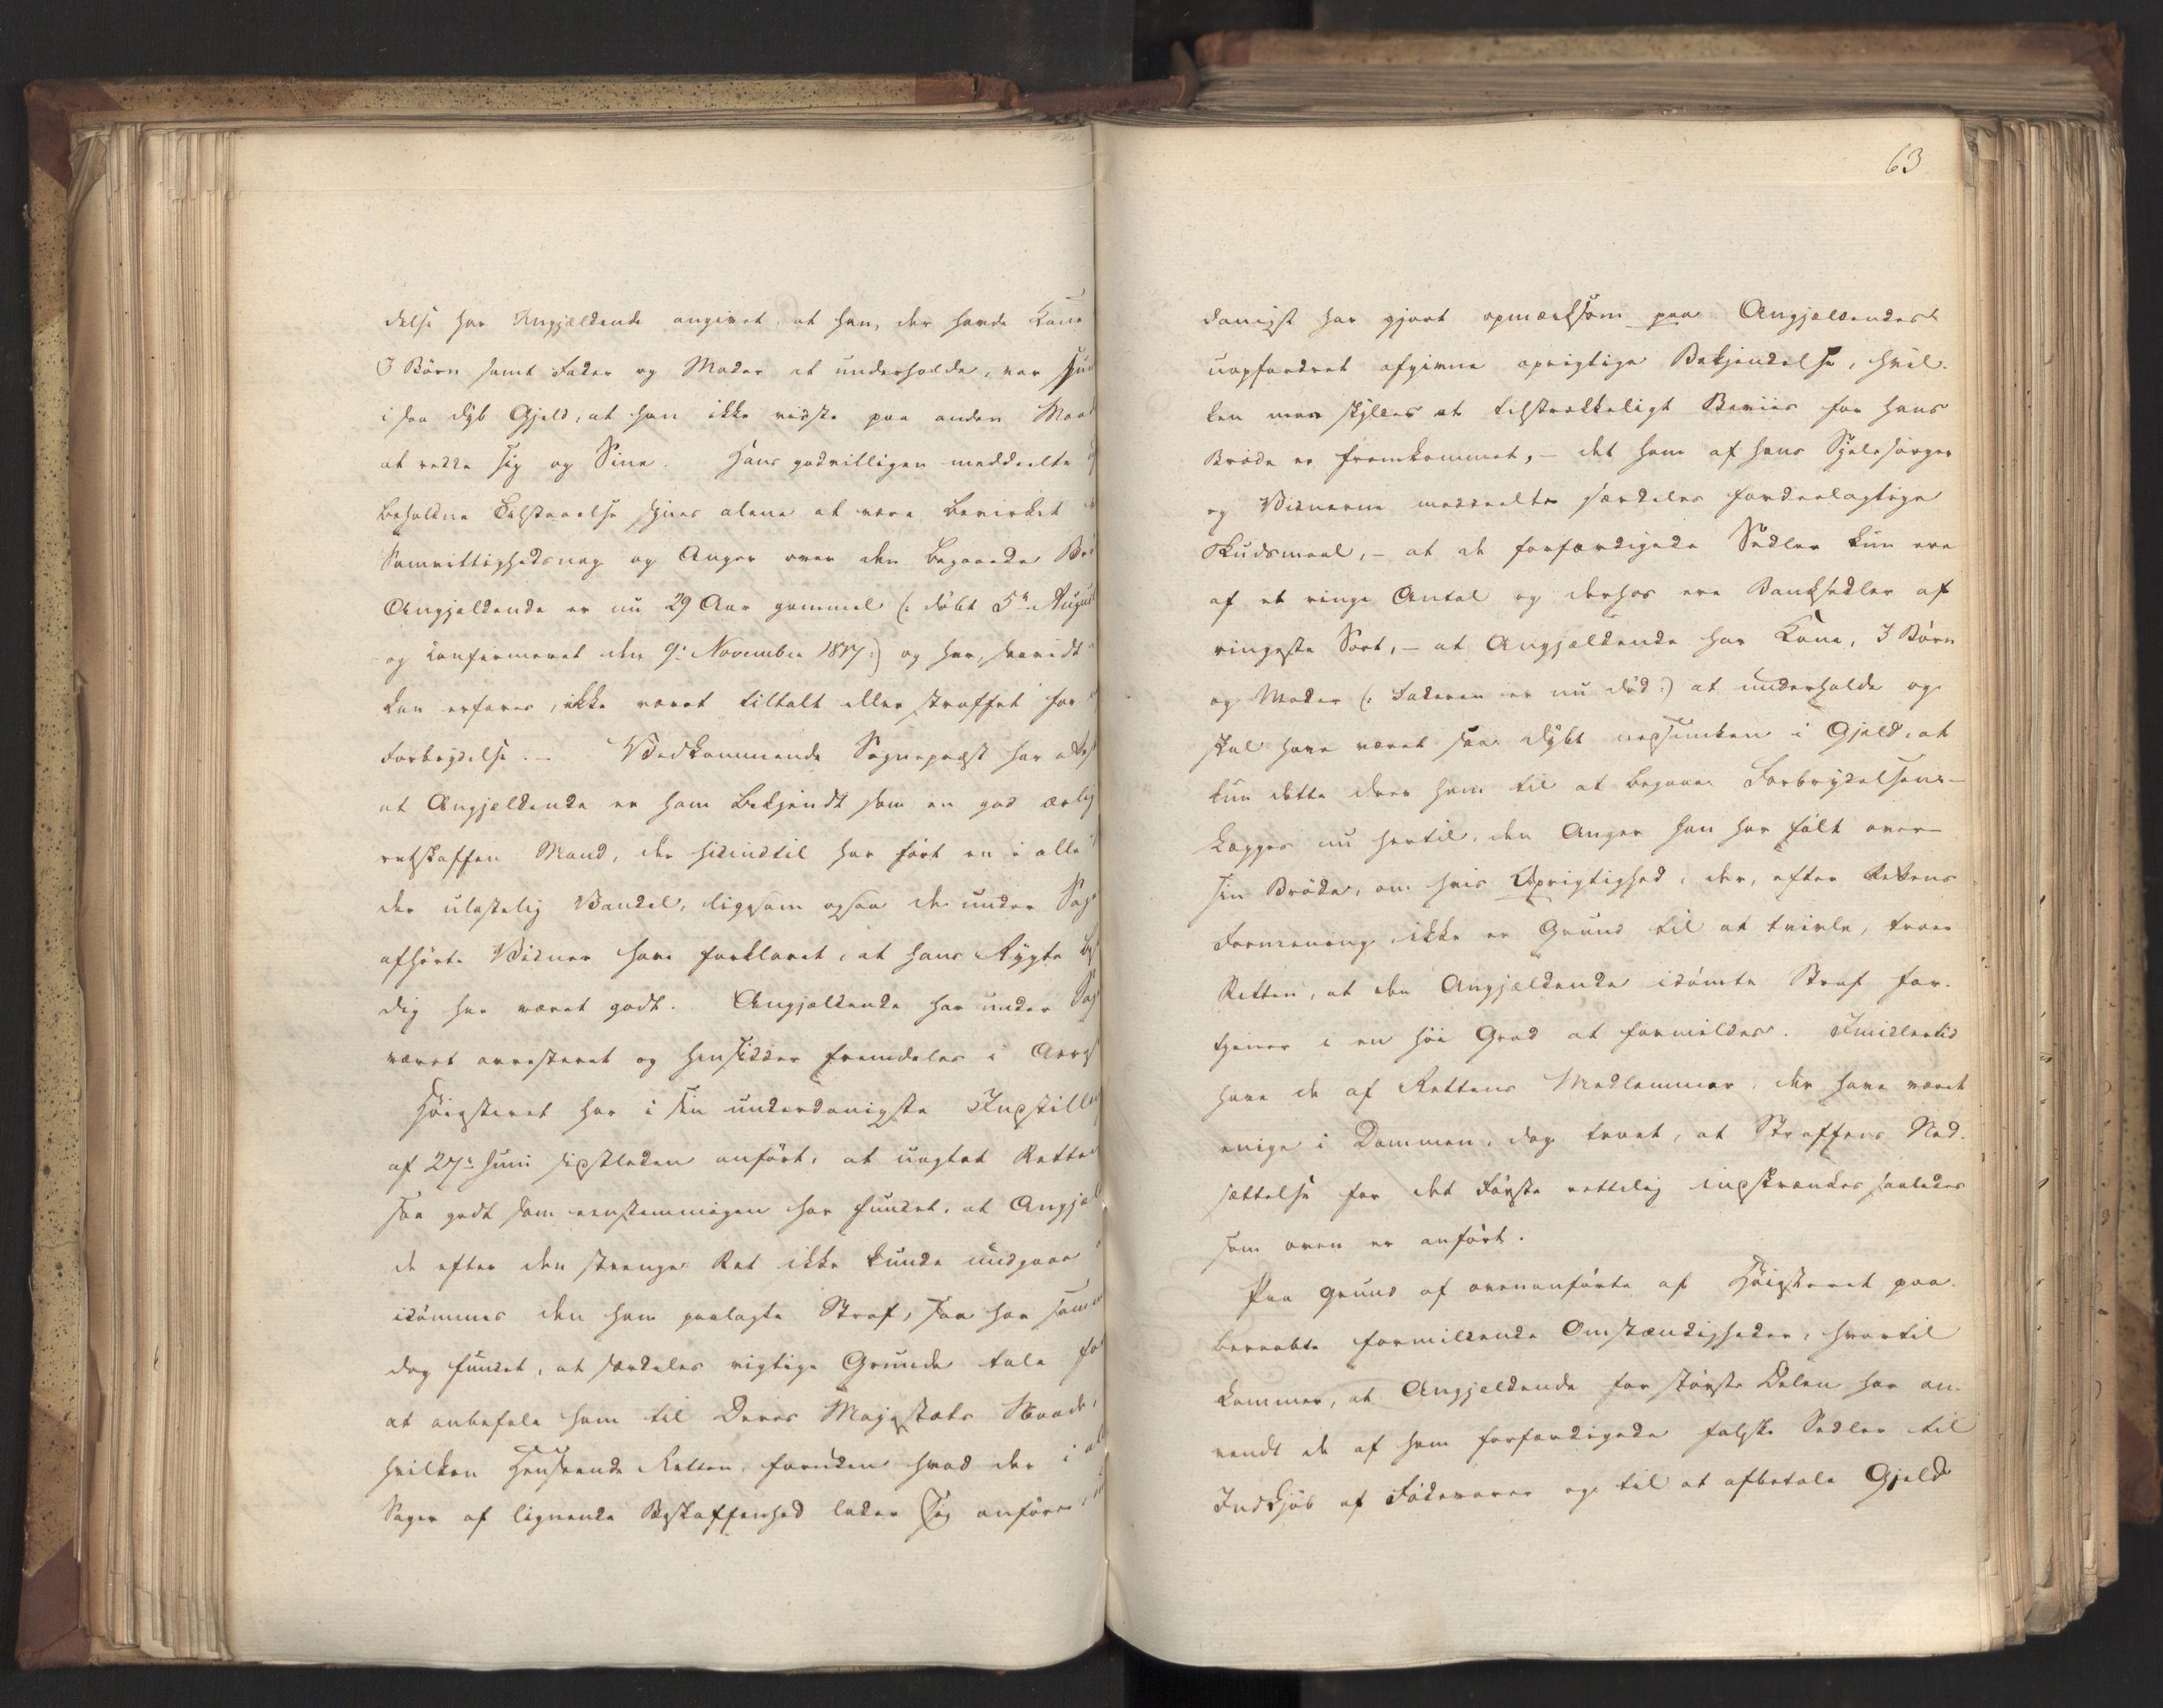 delse har Angjældende angivet, at han, der havde Kone
3 Børn samt Fader og Moder at underholde, var
i saa dyb Gjeld, at han ikke vidste paa anden Maad
at redde sig og Sine. Hans godvilligen meddeelte
beholdne Tilstaaelse synes alene at være bevirket
Samvittighedsnag og Anger over den begaaede Brø
Angjeldende er nu 29 Aar gammel (: døbt 5te August
og confirmeret den 9de November 1817:) og har, saavidt
kan erfares, ikke været tiltalt eller straffet for
Forbrydelse. – Vedkommende Sognepræst har attest
at Angjeldende er ham bekjendt som en god ærlig
retskaffen Mand, der hidindtil har ført en i alle
der ulastelig Vandel, ligesom ogsaa de under Sag
afhørte Vidner have forklaret, at hans Rygte
dig har været godt. Angjældende har under Sag
været arresteret og hensidder fremdeles i Arrest
Høiesteret har i sin underdanigste Indstilling
af 27de Juni sidstleden anført, at uagtet Retten
saa godt som eenstemmigen har fundet, at Angjæl
de efter den strenge Ret ikke kunde undgaae
idømmes den ham paalagte Straf, saa har samme
dog fundet, at særdeles vigtige Grunde tale for
at anbefale ham til Deres Majestæts Naade,
hvilken Henseende Retten, foruden hvad der i al
Sager af lignende Beskaffenhed lader sig anføre
63
danigst har gjort opmærksom paa Angjældendes
uopfordret afgivne oprigtige Bekjendelse, hvil-
ken man skyldes at tilstrækkeligt Beviis for hans
Brøde er fremkommet, – det ham af hans Sjelesørger
og Vidnerne meddeelte særdeles fordeelagtige
Skudsmaal, – at de forfærdigede Sedler kun ere
af et ringe Antal og derhos ere Banksedler af
ringeste Sort, – at Angjældende har Kone, 3 Børn
og Moder (: Faderen er nu død:) at underholde og
skal have været saa dybt nedsunken i Gjeld, at
kun dette drev ham til at begaae Forbrydelsen. –
Lægges nu hertil, den Anger han har følt over
sin Brøde, om hvis Oprigtighed, der, efter Rettens
Formening ikke er Grund til at tvivle, troer
Retten, at den Angjældende idømte Straf for-
tjener i en høi Grad at formildes. Imidlertid
have de af Rettens Medlemmer, der have været
enige i Dommen, dog troet, at Straffens Ned-
sættelse for det Første rettelig indskrænkes saaledes
som oven er anført.
Paa Grund af ovenanførte af Høiesteret paa-
beraabte formildende Omstændigheder, hvortil
kommer, at Angjeldende for største Delen har an-
vendt de af ham forfærdigede falske Sedler til
Indkjøb af Fødevarer og til at afbetale Gjeld